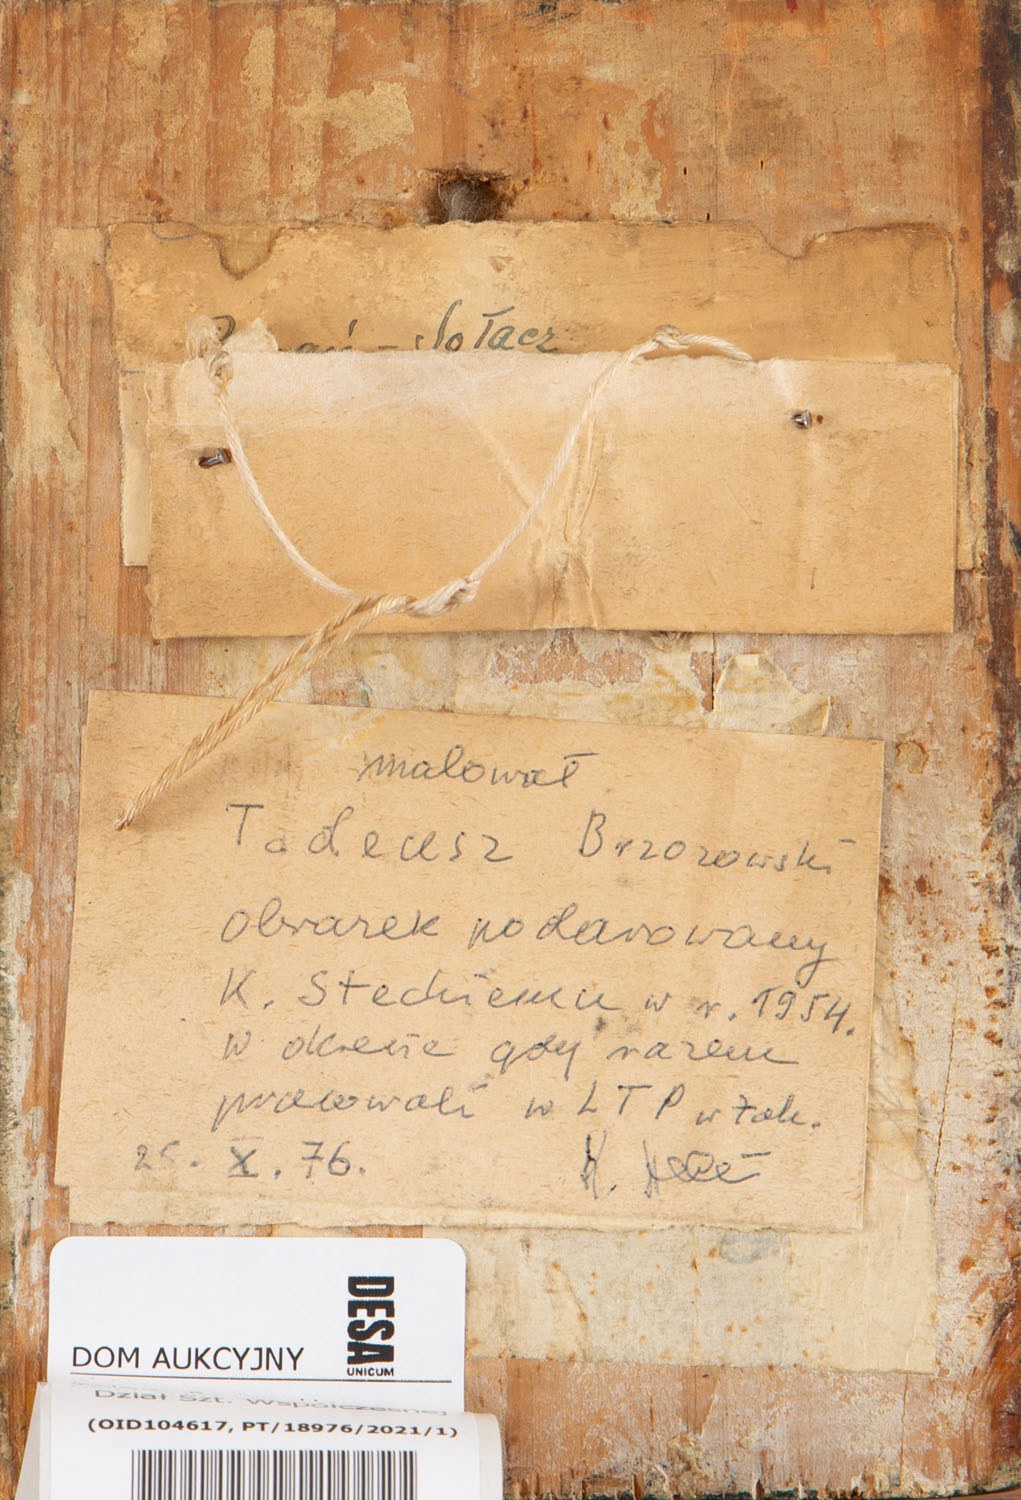 Sołacz
malował
Tadeusz Brzozowski
obrazek podarowany
K. Steckiemu w r. 1954.
w okresie gdy razem
pracowali w LTP w Zak.
25. X. 76.
K.
DESA
UNICUM
DOM AUKCYJNY
Dział Szt. Współczesnej
(OID104617, PT/18976/2021/1)